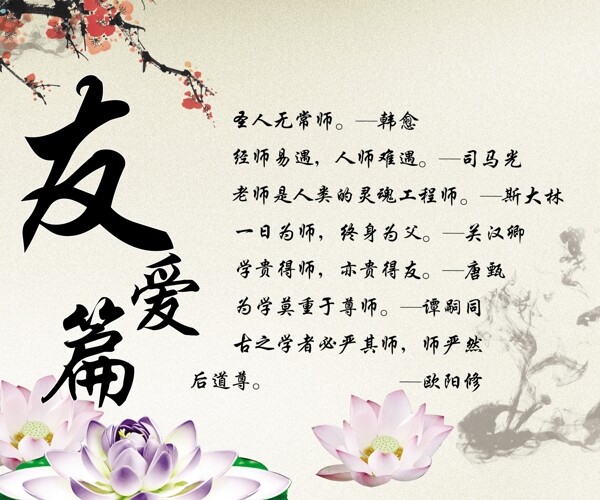 友爱篇
圣人无常师。—韩愈
经师易遇，人师难遇。—司马光
老师是人类的灵魂工程师。—斯大林
一日为师，终身为父。—关汉卿
学贵得师，亦贵得友。—唐甄
为学莫重于尊师。—谭嗣同
古之学者必严其师，师严然
后道尊。 —欧阳修